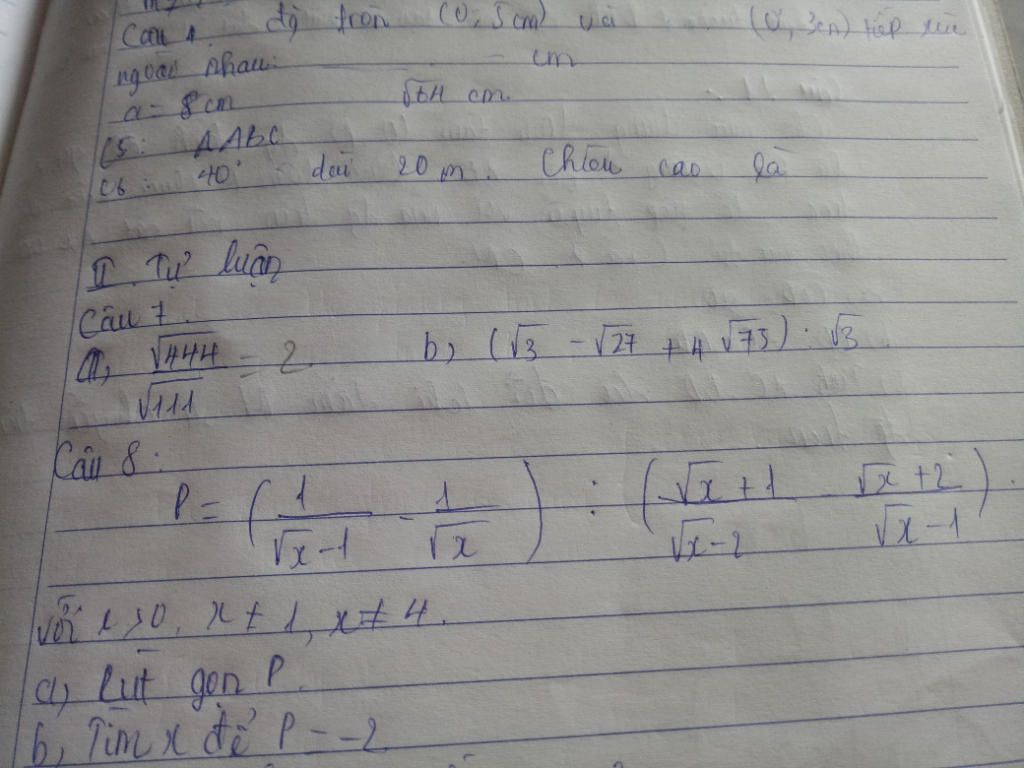 Câu 1. độ tròn (O; 5cm) và (O', 3cm) tiếp xúc
ngoài nhau: cm
a = 8cm cm.
C5: ΔABC
C6: 40° dài 20 m. Chiều cao là
II. Tự luận
Câu 7.
a, √444/√111 = 2 b, (√3 - √27 + 4√75) . √3
Câu 8:
P = (1/(√x-1) - 1/√x) : ((√x+1)/(√x-2) - (√x+2)/(√x-1)).
với x>0, x≠1, x≠4.
a, Rút gọn P.
b, Tìm x để P = -2